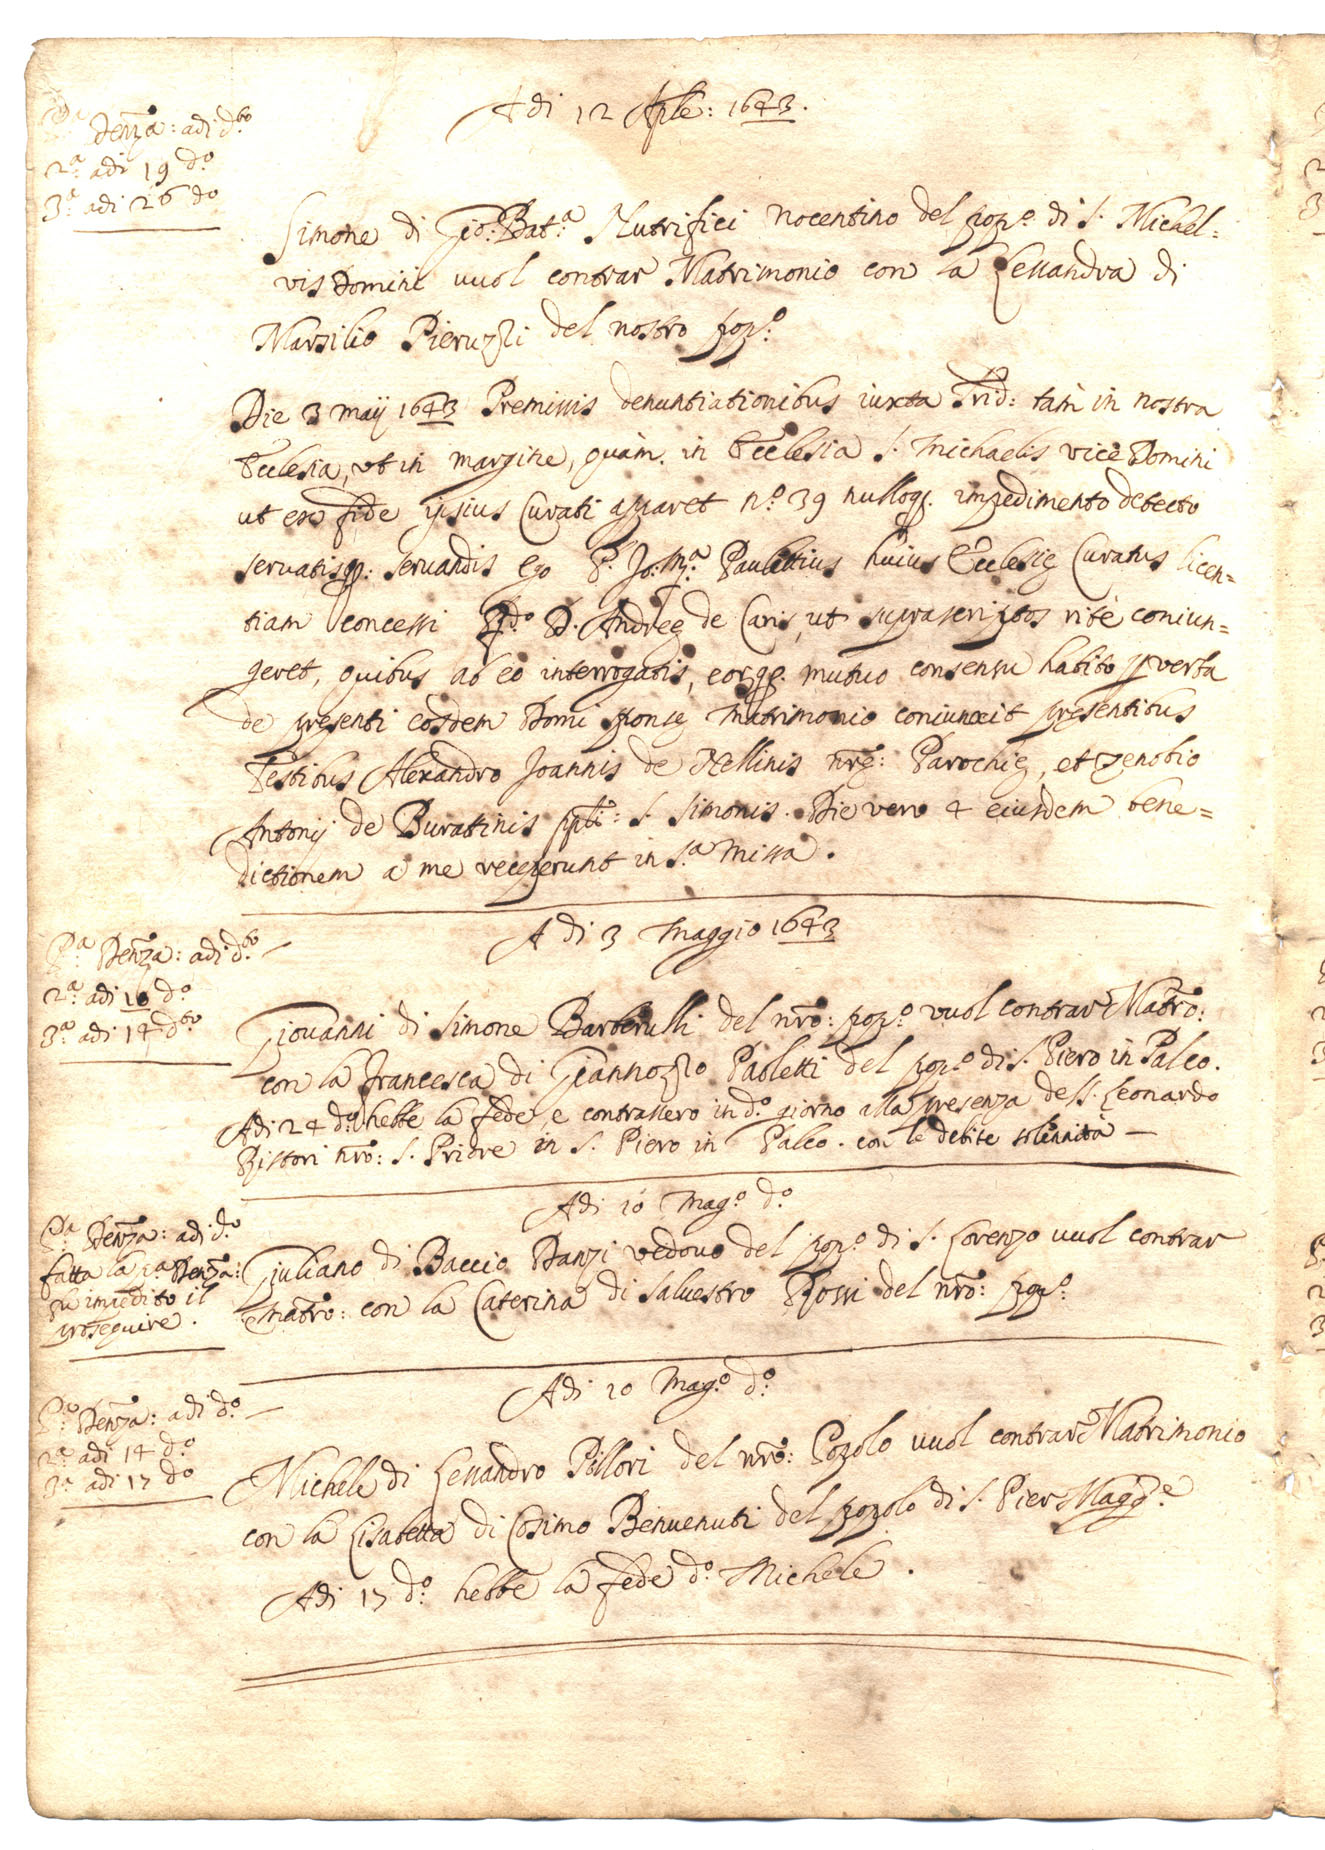 Adi 12 Aple: 1643.
P.ª Denza: adi d.to
2.ª adi 19 d.o
3.ª adi 26 do
Simone di Gio: Bat.ª Nutrifici nocentino del pop.o di S. Michel=
vis Domini vuol contrar Matrimonio con la Lessandra di
Marsilio Pieruzzi del nostro pop.o
Die 3 maij 1643 Premissis denuntiationibus iuxta Trid: tam in nostra
Ecclesia, ut in margine, quàm in Ecclesia S. Michaelis vice Domini
ut ex fide ipsius Curati apparet n.o 39 nulloq. impedimento detecto
servatisq: servandis ego P. Jo: M.ª Paulettius huius Ecclesię Curatus licen=
tiam concessi R.do D. Andreę de Canis, ut suprascriptos ritè coniun=
geret, quibus ab eo interrogatis, eorqq. mutuo consensu habito p verba
de presenti eosdem Domi sponsę Matrimonio coniunxit presentibus
Testibus Alexandro Joannis de Nellinis nrę: Parochię, et Zenobio
Antonij de Buratinis ppli: S. Simonis. Die vero 4 eiusdem bene=
dictionem a me receperunt in S.ª Missa.
A di 3 Maggio 1643
P.ª Denza: adi d.to
2.ª adi 10 d.o
3.ª adi 14 d.to
Giovanni di Simone Barberulli del nro: pop.o vuol contrar Matro:
con la Francesca di Giannozzo Paoletti del pop.o di S. Piero in Palco.
Adi 24 d.o hebbe la fede, e contrassero in d.o giorno alla presenza del S. Leonardo
Ristori nro: S. Priore in S. Piero in Palco. con le debite solennità
Adi 10 Mag.o d.o
P.ª Denza: adi d.o
fatta la p.ª Denza:
fu impedito il
proseguire.
Giuliano di Baccio Danzi vedovo del pop.o di S. Lorenzo vuol contrar
matro: con la Caterina di Salvestro Rossi del nro: pop.o
Adi 10 Mag.o d.o
P.ª Denza: adi d.o
2.ª adi 14 d.o
3.ª adi 17 do
Michele di Lessandro Pillori del nro: Popolo vuol contrar Matrimonio
con la Lisabetta di Cosimo Benvenuti del popolo di S. Pier Magg.e
Adi 17 d.o hebbe la fede d.o Michele.